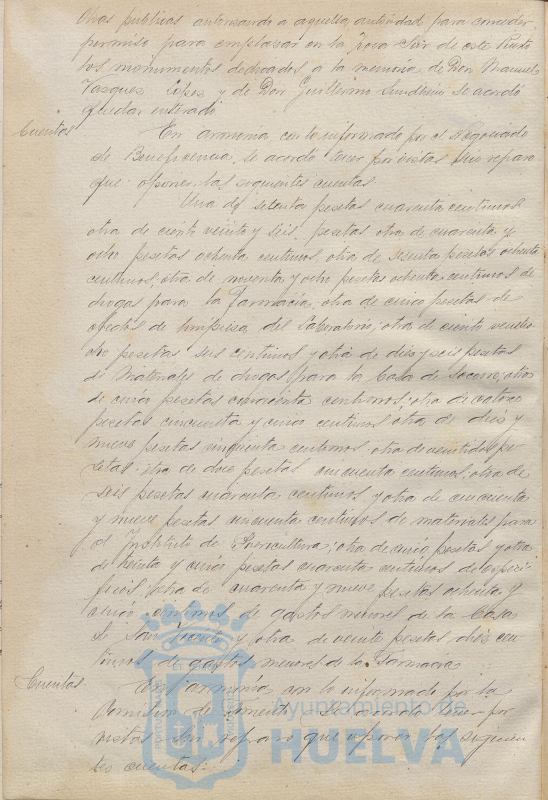 Obras públicas autorizando a aquella autoridad para conceder
permiso para emplazar en la Zona Sur de este Puerto
los monumentos dedicados a la memoria de Don Manuel
Vazquez Lopez y de Don Guillermo Sundheim se acordó
quedar enterado
Cuentas
En armonia con lo informado por el Negociado
de Beneficencia, se acordó tener por vistas sin reparo
que oponer las siguientes cuentas
Una de setenta pesetas cuarenta centimos
otra de ciento veinte y seis pesetas otra de cuarenta y
ocho pesetas ochenta centimos, otra de sesenta pesetas ochenta
centimos, otra de noventa y ocho pesetas ochenta centimos de
drogas para la Farmacia, otra de cinco pesetas de
efectos de limpieza del Laboratorio; otra de ciento
ocho pesetas seis centimos y otra de diez y seis pesetas
de materiales de drogas para la Casa de Socorro; otra
de cinco pesetas cincuenta centimos; otra de catorce
pesetas cincuenta y cinco centimos otra de diez y
nueve pesetas cincuenta centimos; otra de veintidos pe
setas; otra de doce pesetas cincuenta centimos; otra de
seis pesetas cuarenta centimos y otra de cincuenta
y nueve pesetas cincuenta centimos de materiales para
el Instituto de Puericultura; otra de cinco pesetas y otra
de treinta y cinco pesetas cuarenta centimos de especi
ficos; otra de cuarenta y nueve pesetas ochenta y
cinco centimos de gastos menores de la Casa
de San Vicente y otra de veinte pesetas diez cen
timos de gastos menores de la Farmacia
Cuentas
En armonía con lo informado por la
Comision de Fomento se acordó tener por
vistas sin reparo que oponer las siguien
tes cuentas:
Ayuntamiento de
HUELVA